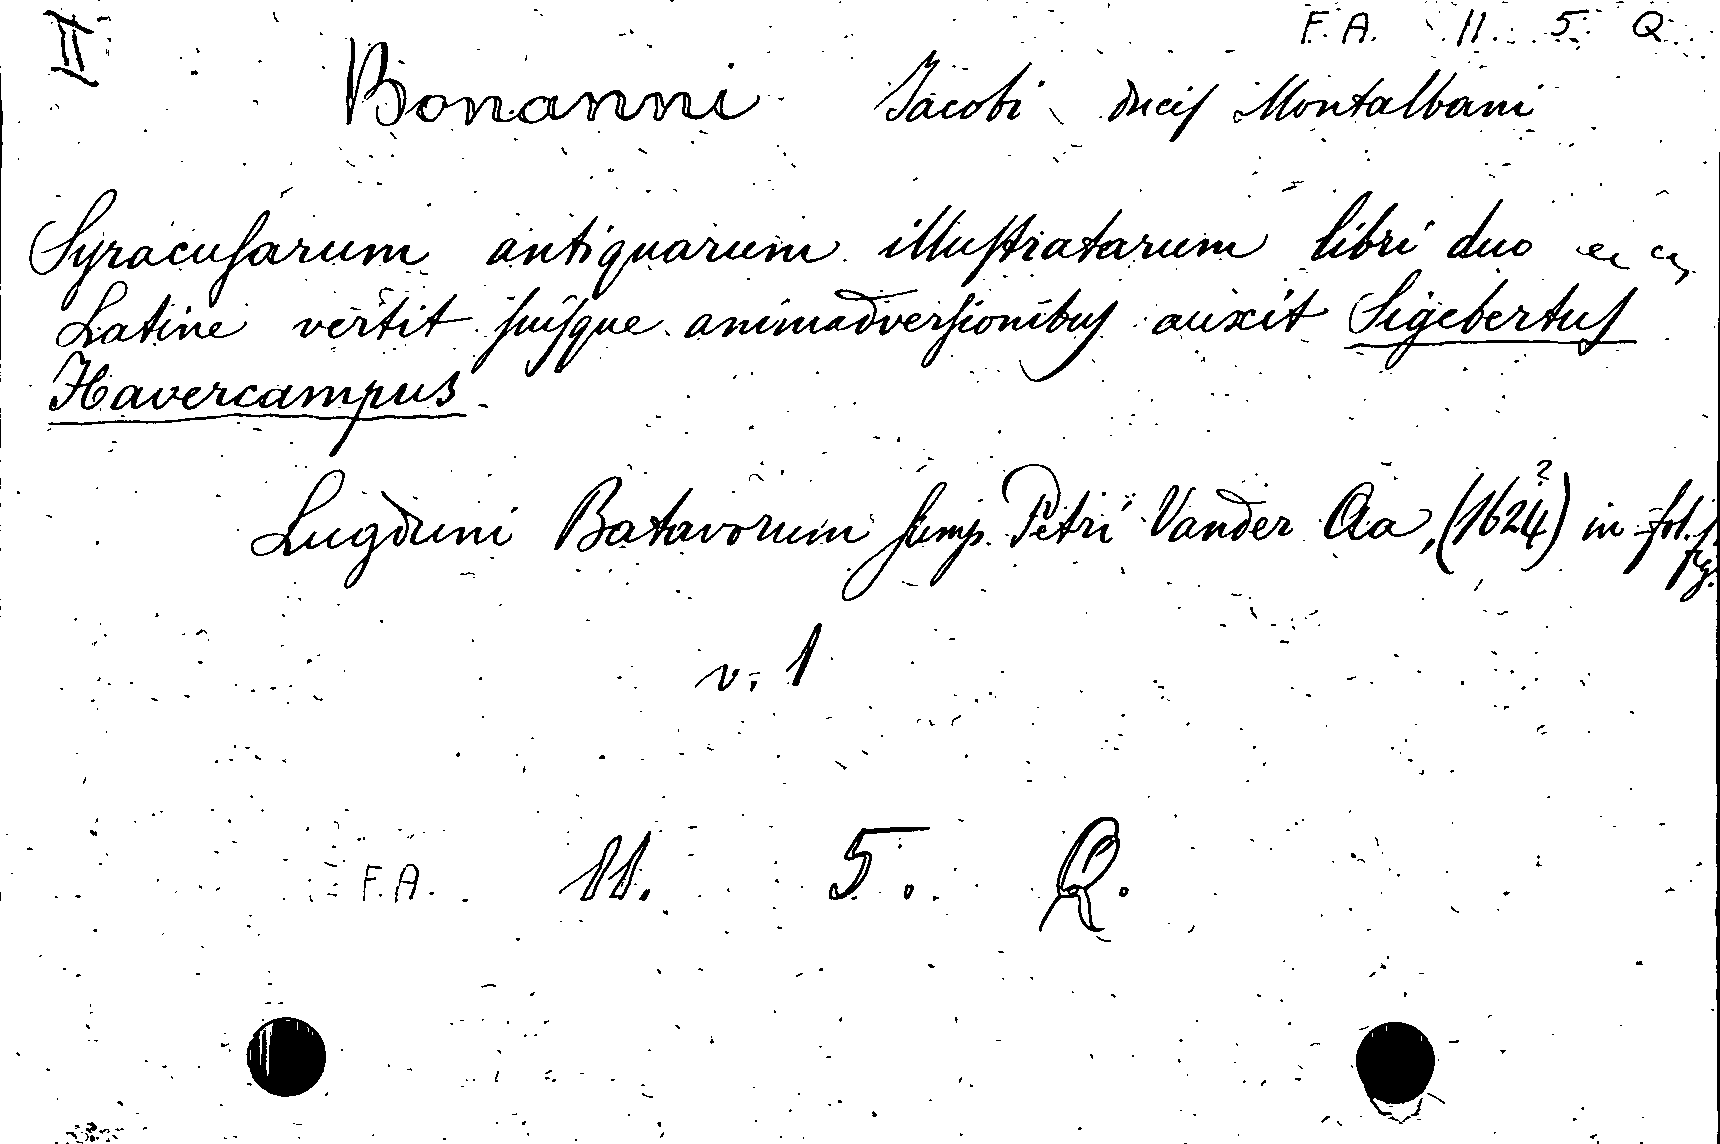 II F. A. 11. 5. Q.
Bonanni Jacobi ducis Montalbani
Syracusarum antiquarum illustratarum libri duo
Latine vertit suisque animadversionibus auxit Sigebertus
Havercampus.
Lugduni Batavorum sump. Petri Vander Aa, (1624?) in fol. fig.
v. 1
F. A. 11. 5. Q.